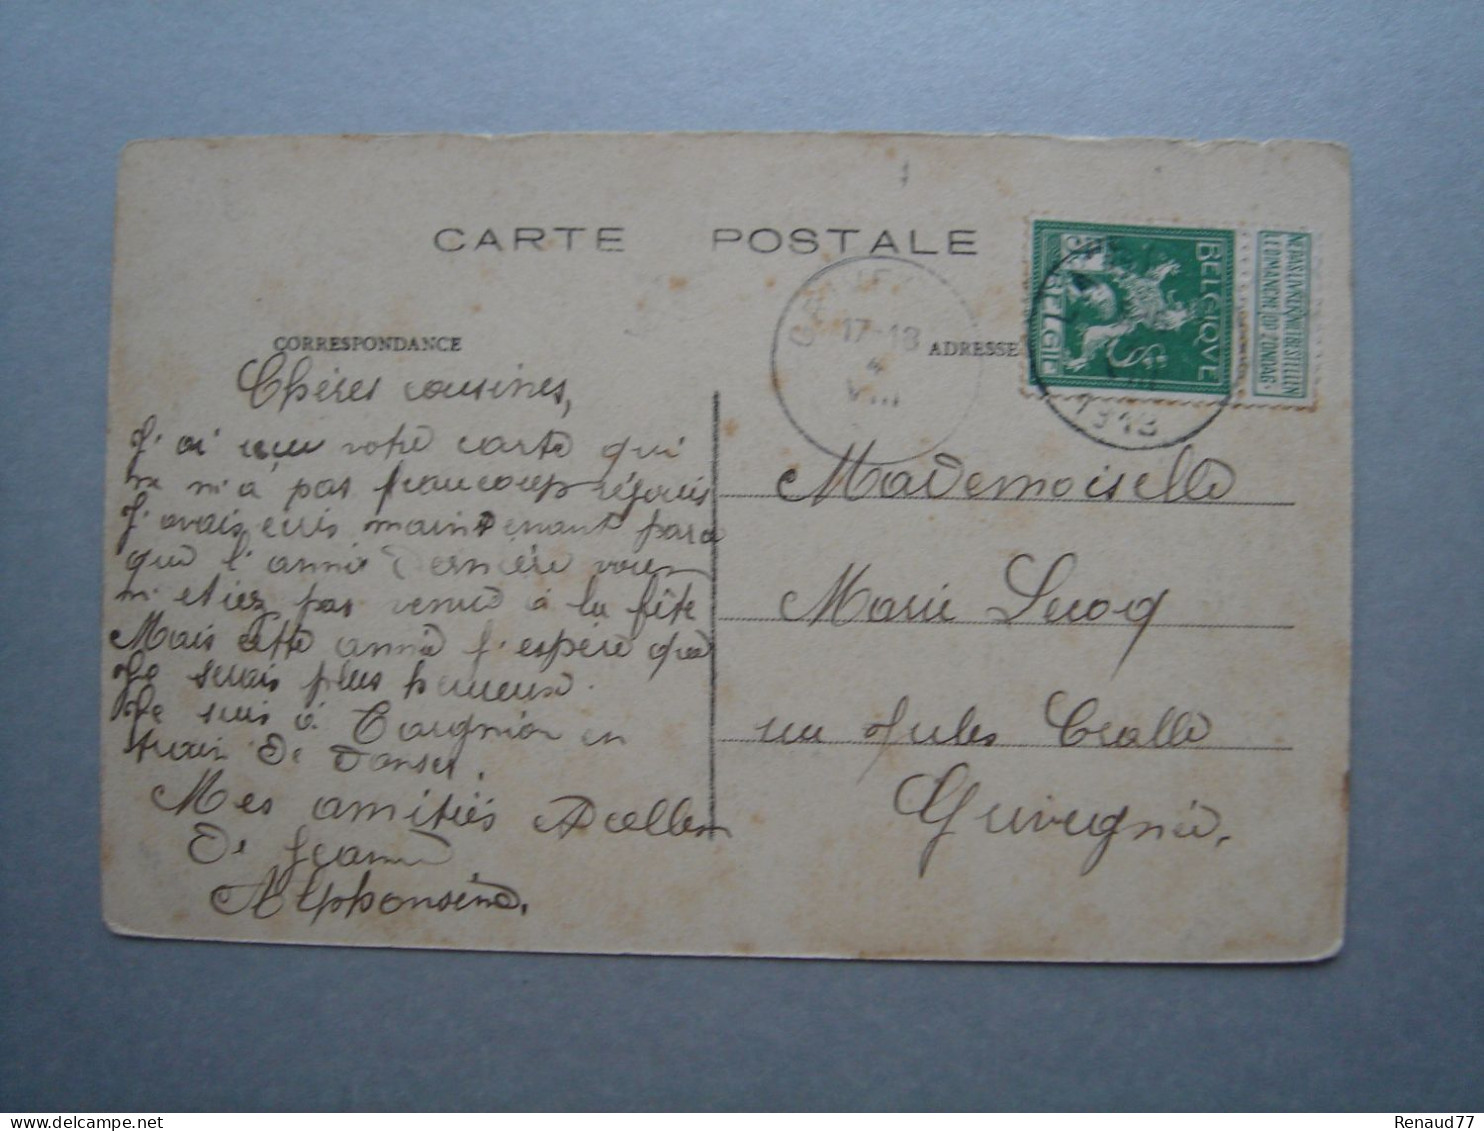 CARTE POSTALE
CORRESPONDANCE
ADRESSE
BELGIQVE
BELGIE
NE PAS LIVRER LE DIMANCHE
NIET BESTELLEN OP ZONDAG
17-18
4
VIII
1913
Chères cousines,
J'ai reçu votre carte qui
ne m'a pas beaucoup réjouis
J'avais cris maintenant parce
que l'année dernière vous
n'etiez pas venue à la fête
Mais cette année j'espère que
Je serais plus heureuse.
Je suis à en
train de danser.
Mes amitiés
de Jeanne
Alphonsine.
Mademoiselle
Marie Lecoq
rue Jules
Cuvegnie.
Renaud77